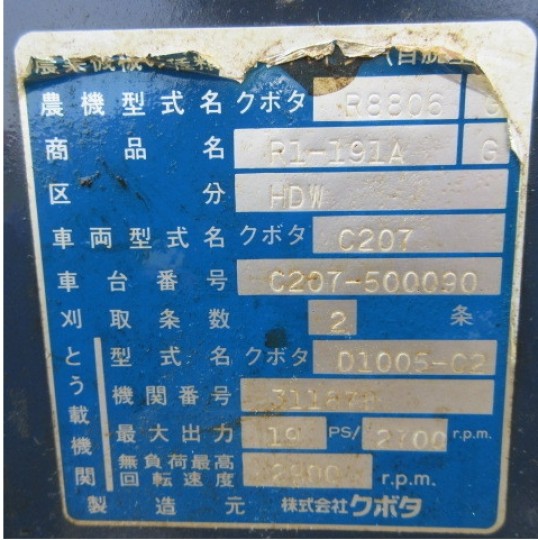 農機型式名 クボタ R8806 G
商品名 R1-191A G
区分 HDW
車両型式名 クボタ C207
車台番号 C207-500090
刈取条数 2 条
とう載機関
型式名 クボタ D1005-C2
機関番号
最大出力 19 PS/ 2700 r.p.m.
無負荷最高回転速度 2900 r.p.m.
製造元 株式会社クボタ